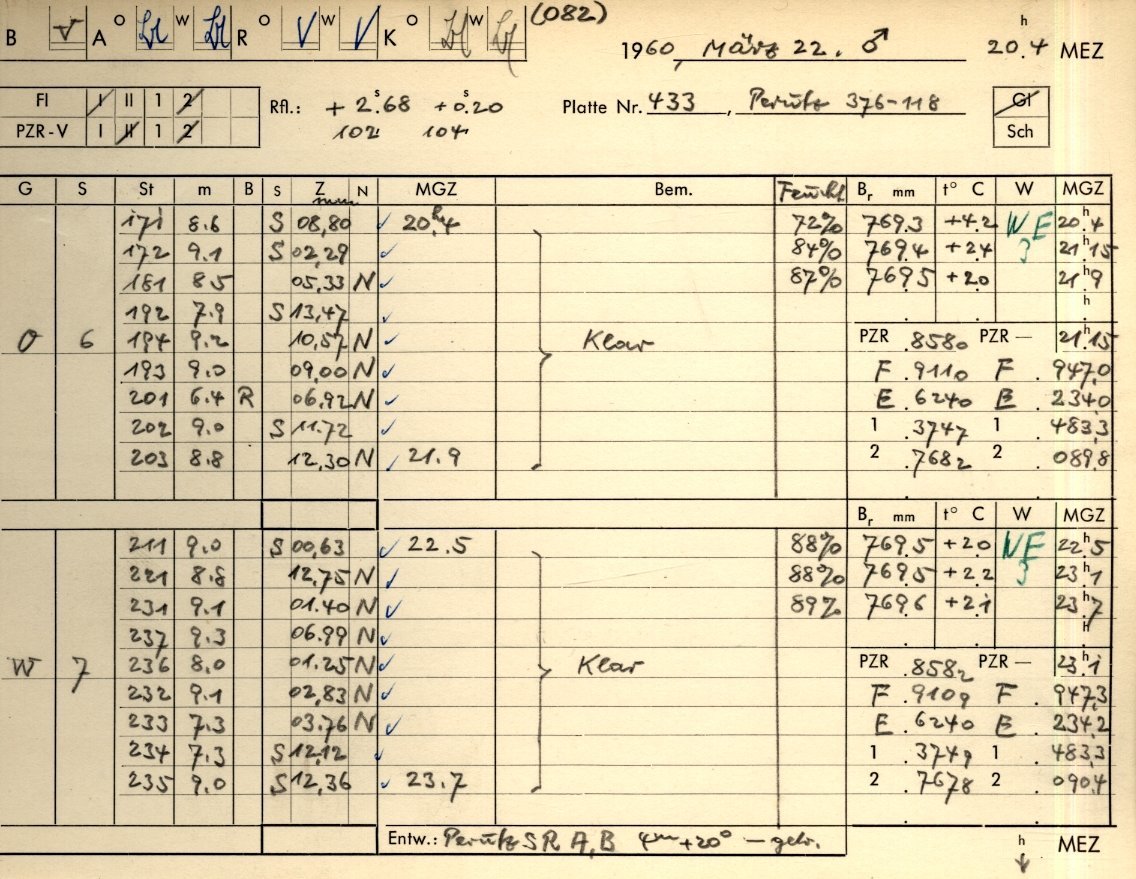 B V A O W R O V W V K O W (082)
1960, März 22. ♂ 20.4 h MEZ
FI I II 1 2 Rfl.: + 2.68 s +0.20 s Platte Nr. 433, Perutz 376-118 Gl
PZR-V I II 1 2 102 104 Sch
G S St m B S Z N MGZ Bem. Feucht Br mm t° C W MGZ
mm
171 8.6 S 08,80 ✓ 20.4 h 72% 769.3 +4.2 WE 20.4 h
172 9.1 S 02,29 ✓ 84% 769.4 +2.4 3 21.15 h
181 8.5 05,33 N ✓ 87% 769.5 +2.0 21.9 h
192 7.9 S 13,47 ✓ h
O 6 194 9.2 10,57 N ✓ Klar PZR .8580 PZR — 21.15
193 9.0 09,00 N ✓ F .9110 F .947,0
201 6.4 R 06,92 N ✓ E .6240 E .234,0
202 9.0 S 11.72 ✓ 1 .3747 1 .483,3
203 8.8 12,30 N ✓ 21.9 2 .7682 2 .089,8
Br mm t° C W MGZ
211 9.0 S 00,63 ✓ 22.5 88% 769.5 +2.0 NE 22.5 h
221 8.8 12,75 N ✓ 88% 769.5 +2.2 3 23.1 h
231 9.1 01.40 N ✓ 89% 769.6 +2.1 23.7 h
237 9.3 06.99 N ✓ h
W 7 236 8.0 01.25 N ✓ Klar PZR .8582 PZR — 23.1 h
232 9.1 02,83 N ✓ F .9109 F .947,3
233 7.3 03.76 N ✓ E .6240 E .234,2
234 7.3 S 12,12 ✓ 1 .3749 1 .483,3
235 9.0 S 12,36 ✓ 23.7 2 .7678 2 .090,4
Entw.: Perutz SR A,B 4m +20° — getr. h MEZ